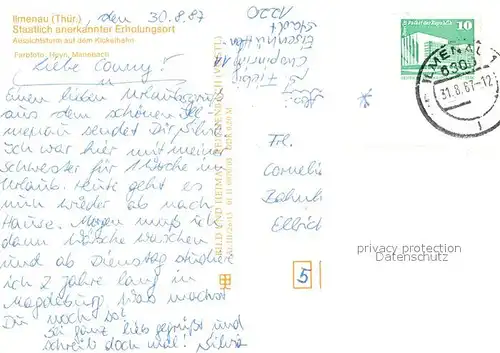 Ilmenau (Thür.)
Staatlich anerkannter Erholungsort
Aussichtsturm auf dem Kickelhahn
Farbfoto: Heyn, Mannebach
, den 30.8.87
Liebe Conny!
Einen lieben Urlaubsgruß
aus dem schönen Ilmenau
sendet Dir Silvi.
Ich war hier mit meiner
Schwester für 1 Woche im
Urlaub. Heute geht es
nun wieder ab nach
Hause. Morgen muß ich
dann Wäsche waschen
und ab Dienstag studiere
ich 2 Jahre lang in
Magdeburg. Was machst
Du noch so?
Sei ganz lieb gegrüßt und
schreib doch mal! Silvia
BILD UND HEIMAT REICHENBACH (VOGTL)
1220
Frl.
Cornelia
Bahnh
Ellrich
5
10
ILMENAU 1
6300
31.8.87-12
privacy protection
Datenschutz